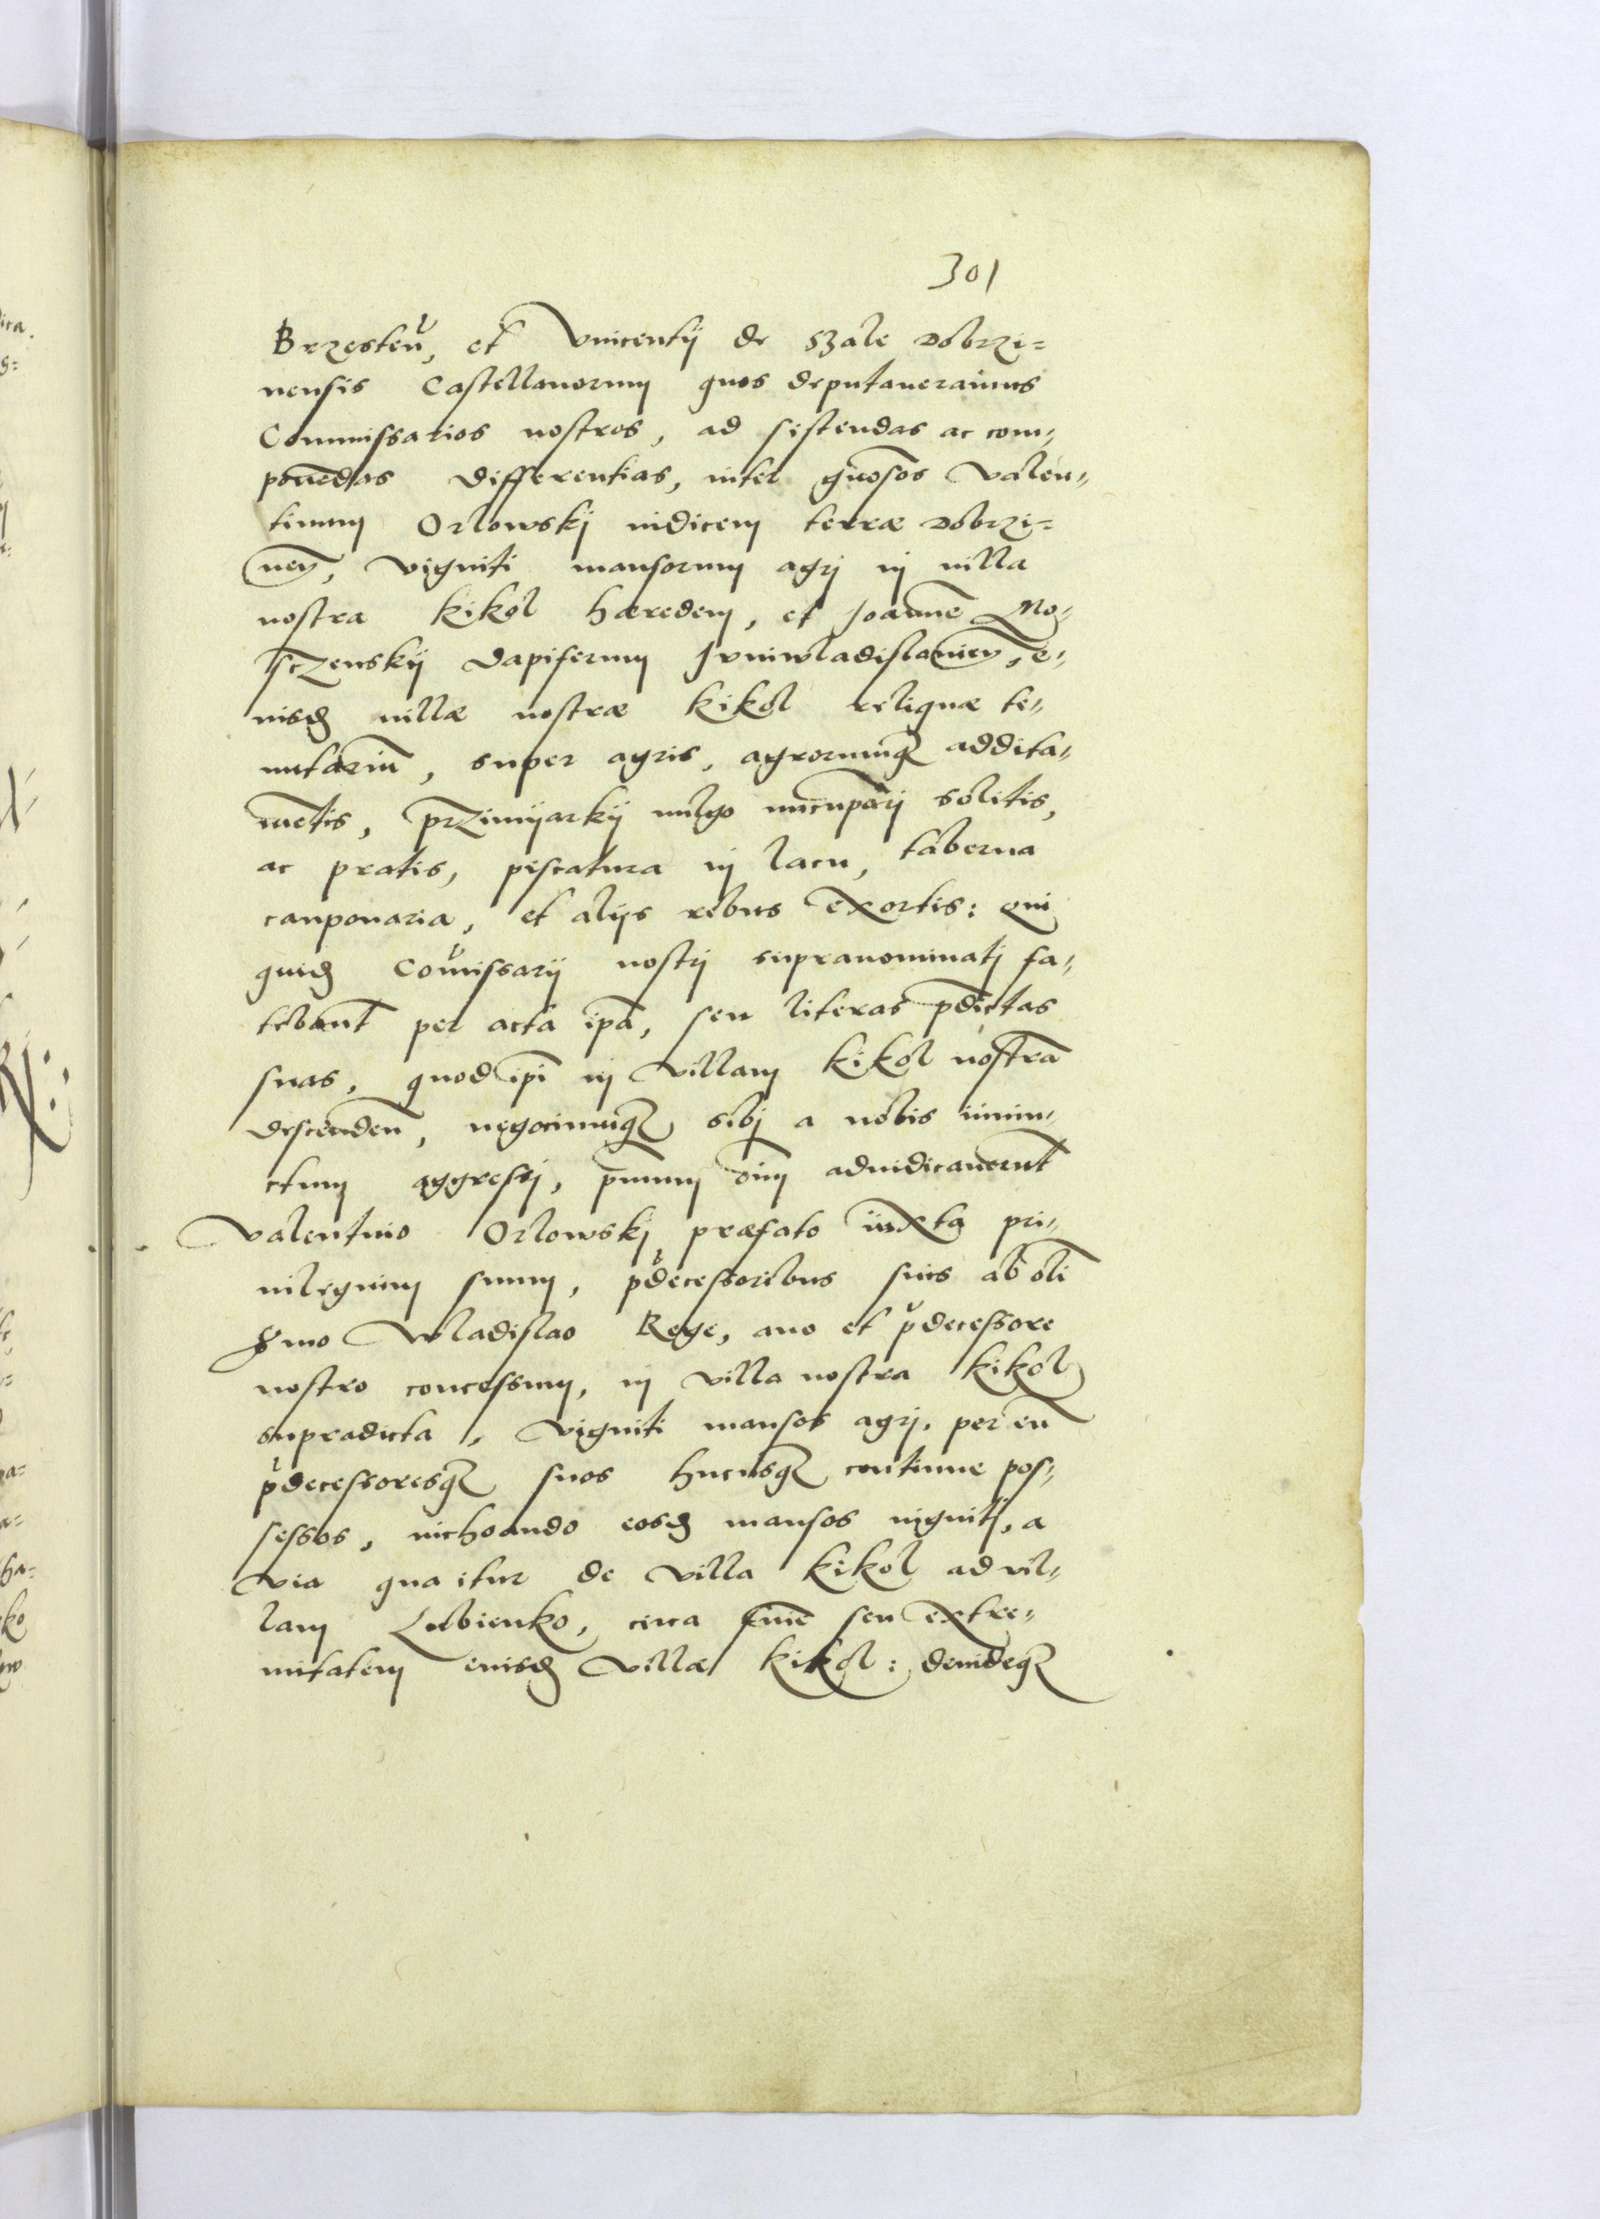 301
Brzesteñ, et Vincentij de Szale Dobrzi=
nensis Castellanorum quos deputaueramus
Commissarios nostros, ad sistendas ac com=
ponēdas differentias, inter gnosos Valen=
tinum Orlowskj iudicem terræ Dobrzi=
neñ, viginti mansorum agrj in uilla
nostra Kikol hæredem, et Joannē Mo=
sczenskij Dapiferum Juniwladislauieñ, e=
iusdē uillæ nostræ Kikol reliquæ te=
nutariū, super agris, agrorumq₃ addita=
mētis, przimijarkij uulgo nūcuparj solitis,
ac pratis, piscatura in lacu, taberna
cauponaria, et alijs rebus exortis: qui
quidē Com̄issarij nostrj supranominatj fa=
tebant̄ per acta ip̄a, seu literas p̄dictas
suas, quod ip̄i in Villam Kikol nostrā
descenden̄, negociumq₃ sibj a nobis iniun=
ctum aggressj, p̄mum om̄ adiudicauerunt̄
Valentino Orlowskj præfato iuxta pri=
uilegium suum, p̄decessoribus suis ab oli
Sermo Wladislao Rege, auo et p̄decessore
nostro concessum, in villa nostra Kikol
supradicta, viginti mansos agrj, per eū
p̄decessoresq₃ suos hucusq₃ continue pos=
sessos, inchoando eosdē mansos uigintj, a
via qua itur de villa Kikol ad vil=
lam Lubienko, circa finē seu extre=
mitatem eiusdē villæ Kikol: deindeq₃